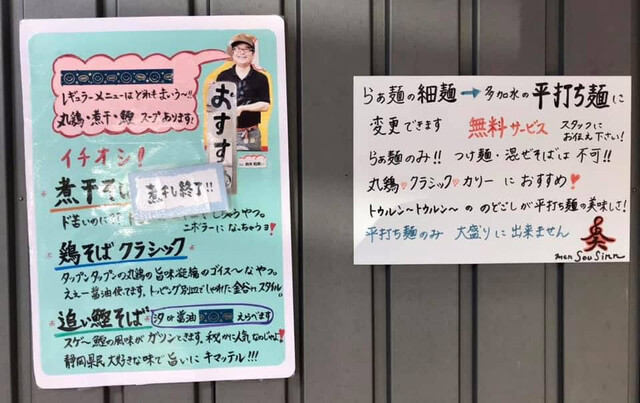 レギュラーメニューはどれもまいう〜!!
丸鶏・煮干・鰹 スープあります!
おすす
イチオシ!
煮干そば
煮干し終了!!
ド苦いのに
なやつ。
ニボラーになっちゃうョ!
鶏そば クラシック
タップンタップンの丸鶏の旨味凝縮のゴイス〜なやつ。
ええー醤油使てます。トッピング別皿でしゃれた金谷inスタイル。
追い鰹そば 汐or醤油 えらべます
スゲ〜鰹の風味がガツンときます。秘かに人気なのじゃよ!
静岡県民大好きな味で旨いにキマッテル!!!
らぁ麺の細麺→多加水の平打ち麺に
変更できます 無料サービス スタッフにお伝え下さい!
らぁ麺のみ!! つけ麺・混ぜそばは不可!!
丸鶏♡クラシック♡カリーにおすすめ♥
トゥルン〜トゥルン〜の のどごしが平打ち麺の美味しさ!
平打ち麺のみ 大盛りに出来ません
men Sou Sinn